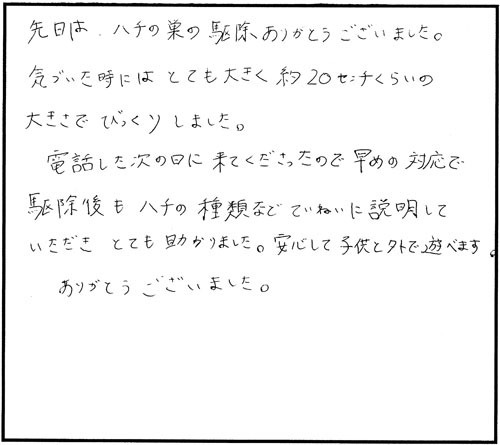 先日は、ハチの巣の駆除ありがとうございました。
気づいた時にはとても大きく約20センチくらいの
大きさでびっくりしました。
電話した次の日に来てくださったので早めの対応で
駆除後もハチの種類などていねいに説明して
いただきとても助かりました。安心して子供と外で遊べます。
ありがとうございました。